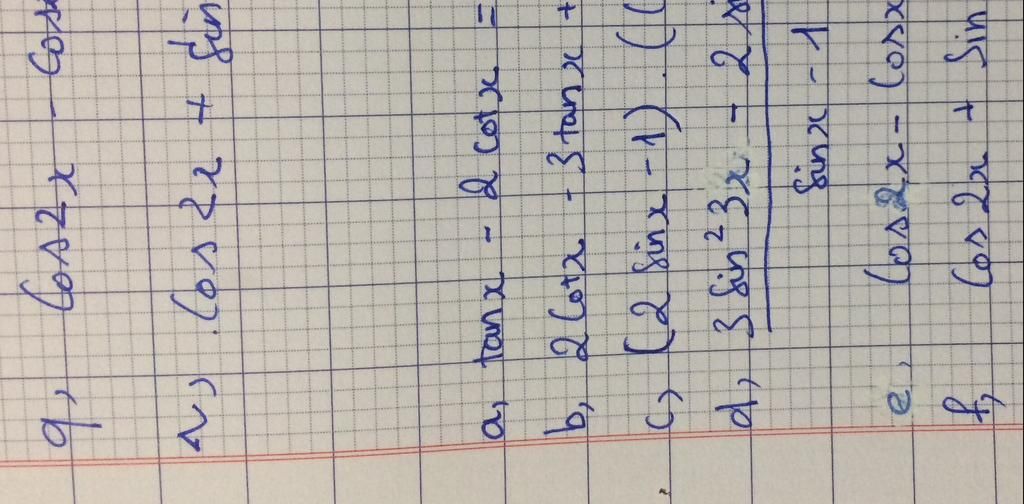 q, Cos2x - Cos
r, Cos 2x + Sin
a, tanx - 2 cotx =
b, 2 Cotx - 3 tanx +
c, (2 sinx - 1) . (
d, 3 Sin² 3x - 2 s
Sinx - 1
e, Cos2x - Cosx
f, Cos 2x + Sin